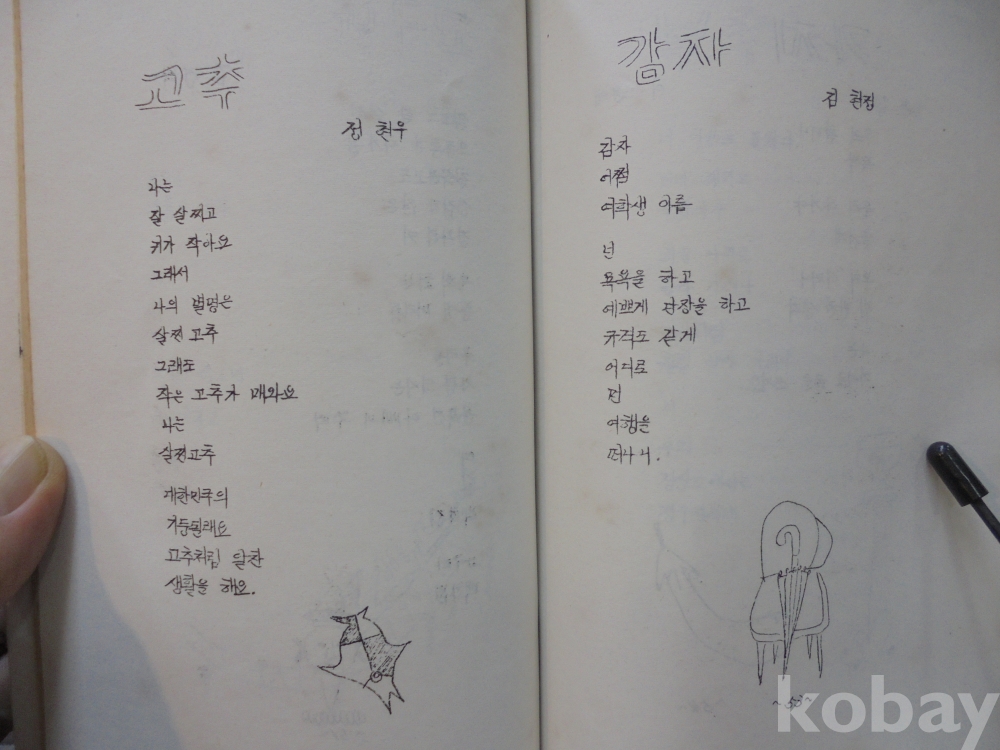 고추
정현우
나는
잘 살찌고
키가 작아요
그래서
나의 별명은
살찐 고추
그래도
작은 고추가 매와요
나는
살찐고추
대한민국의
기둥될래요
고추처럼 알찬
생활을 해요.
감자
김현정
감자
어쩜
여학생 이름
넌
목욕을 하고
예쁘게 단장을 하고
규격도 같게
어디로
먼
여행을
떠나니.
~58~
kobay